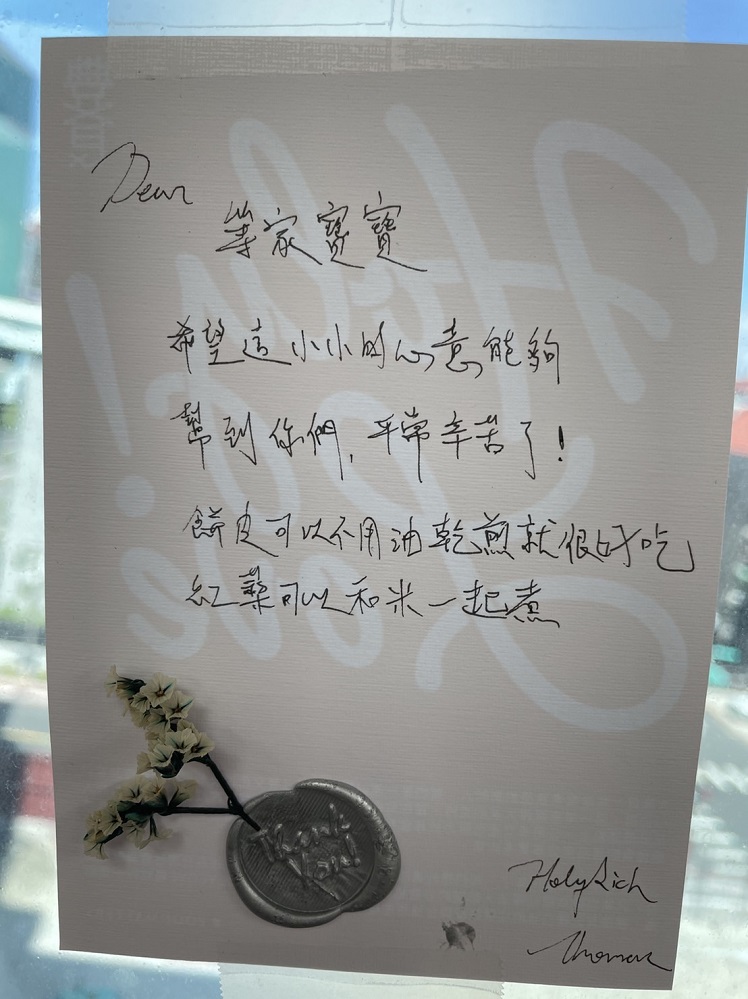 Dear
等家寶寶
希望這小小的心意能夠
幫到你們,平常辛苦了!
餅皮可以不用油乾煎就很好吃
紅藜可以和米一起煮
Thank
You!
HolyRich
Thomas